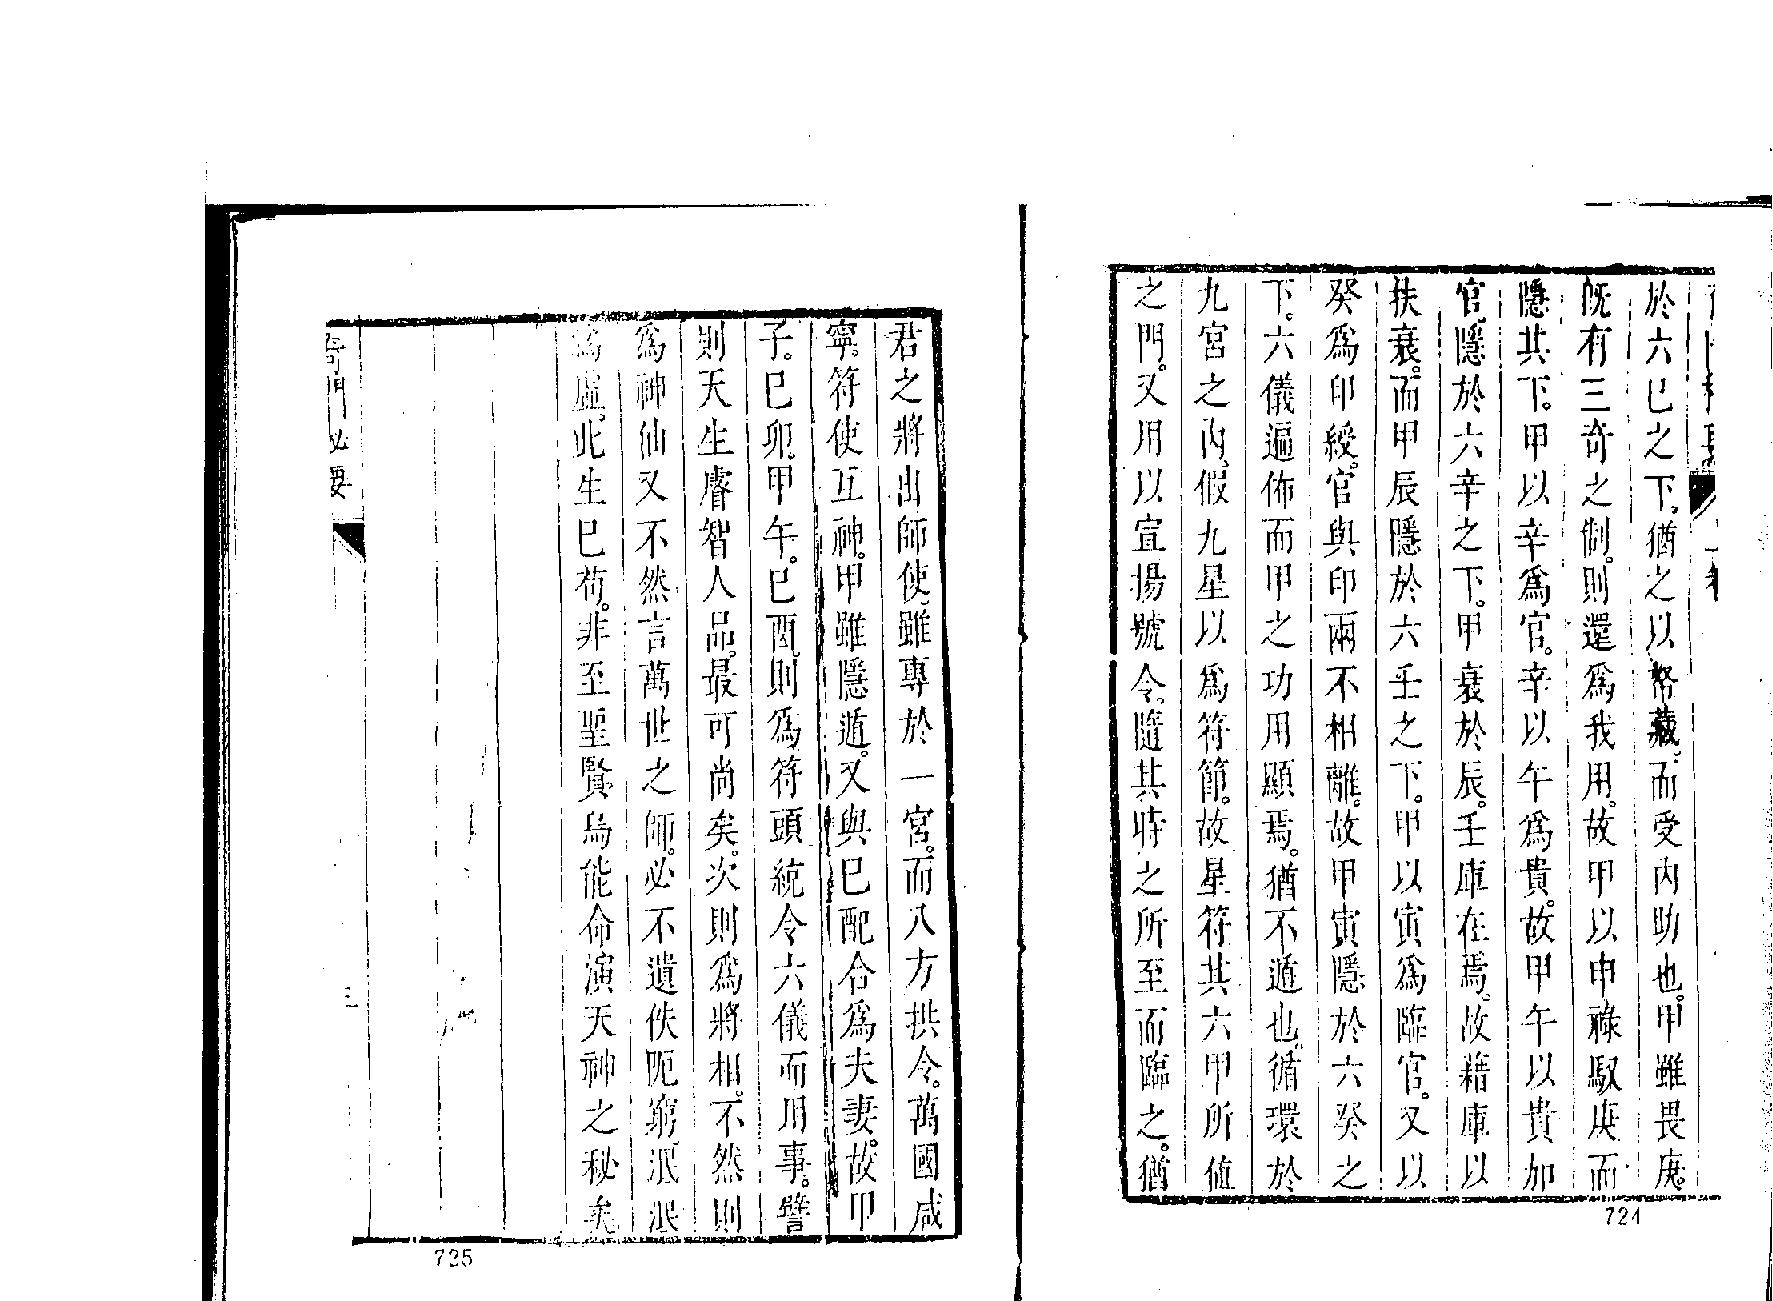 於六己之下。猶之以帑藏。而受內助也。甲雖畏庚。
旣有三奇之制。則還爲我用。故甲以申祿馭庚而
隱其下。甲以辛爲官。辛以午爲貴。故甲午以貴加
官。隱於六辛之下。甲衰於辰。壬庫在焉。故藉庫以
扶衰。而甲辰隱於六壬之下。甲以寅爲臨官。又以
癸爲印綬。官與印兩不相離。故甲寅隱於六癸之
下。六儀遍佈而甲之功用顯焉。猶不遁也。循環於
九宮之內。假九星以爲符節。故星符其六甲所値
之門。又用以宣揚號令。隨其時之所至而臨之。猶
724
君之將出師使。雖專於一宮。而八方拱令。萬國咸
寧。符使互神。甲雖隱遁。又與巳配合爲夫妻。故甲
子。巳卯。甲午。巳酉。則爲符頭統令六儀而用事。譬
則天生睿智人品。最可尚矣。次則爲將相。不然則
爲神仙又不然言萬世之師。必不遺佚阨窮泯泯
爲虛。此生巳苟。非至聖賢烏能命演天神之秘矣
奇門必要
三
725